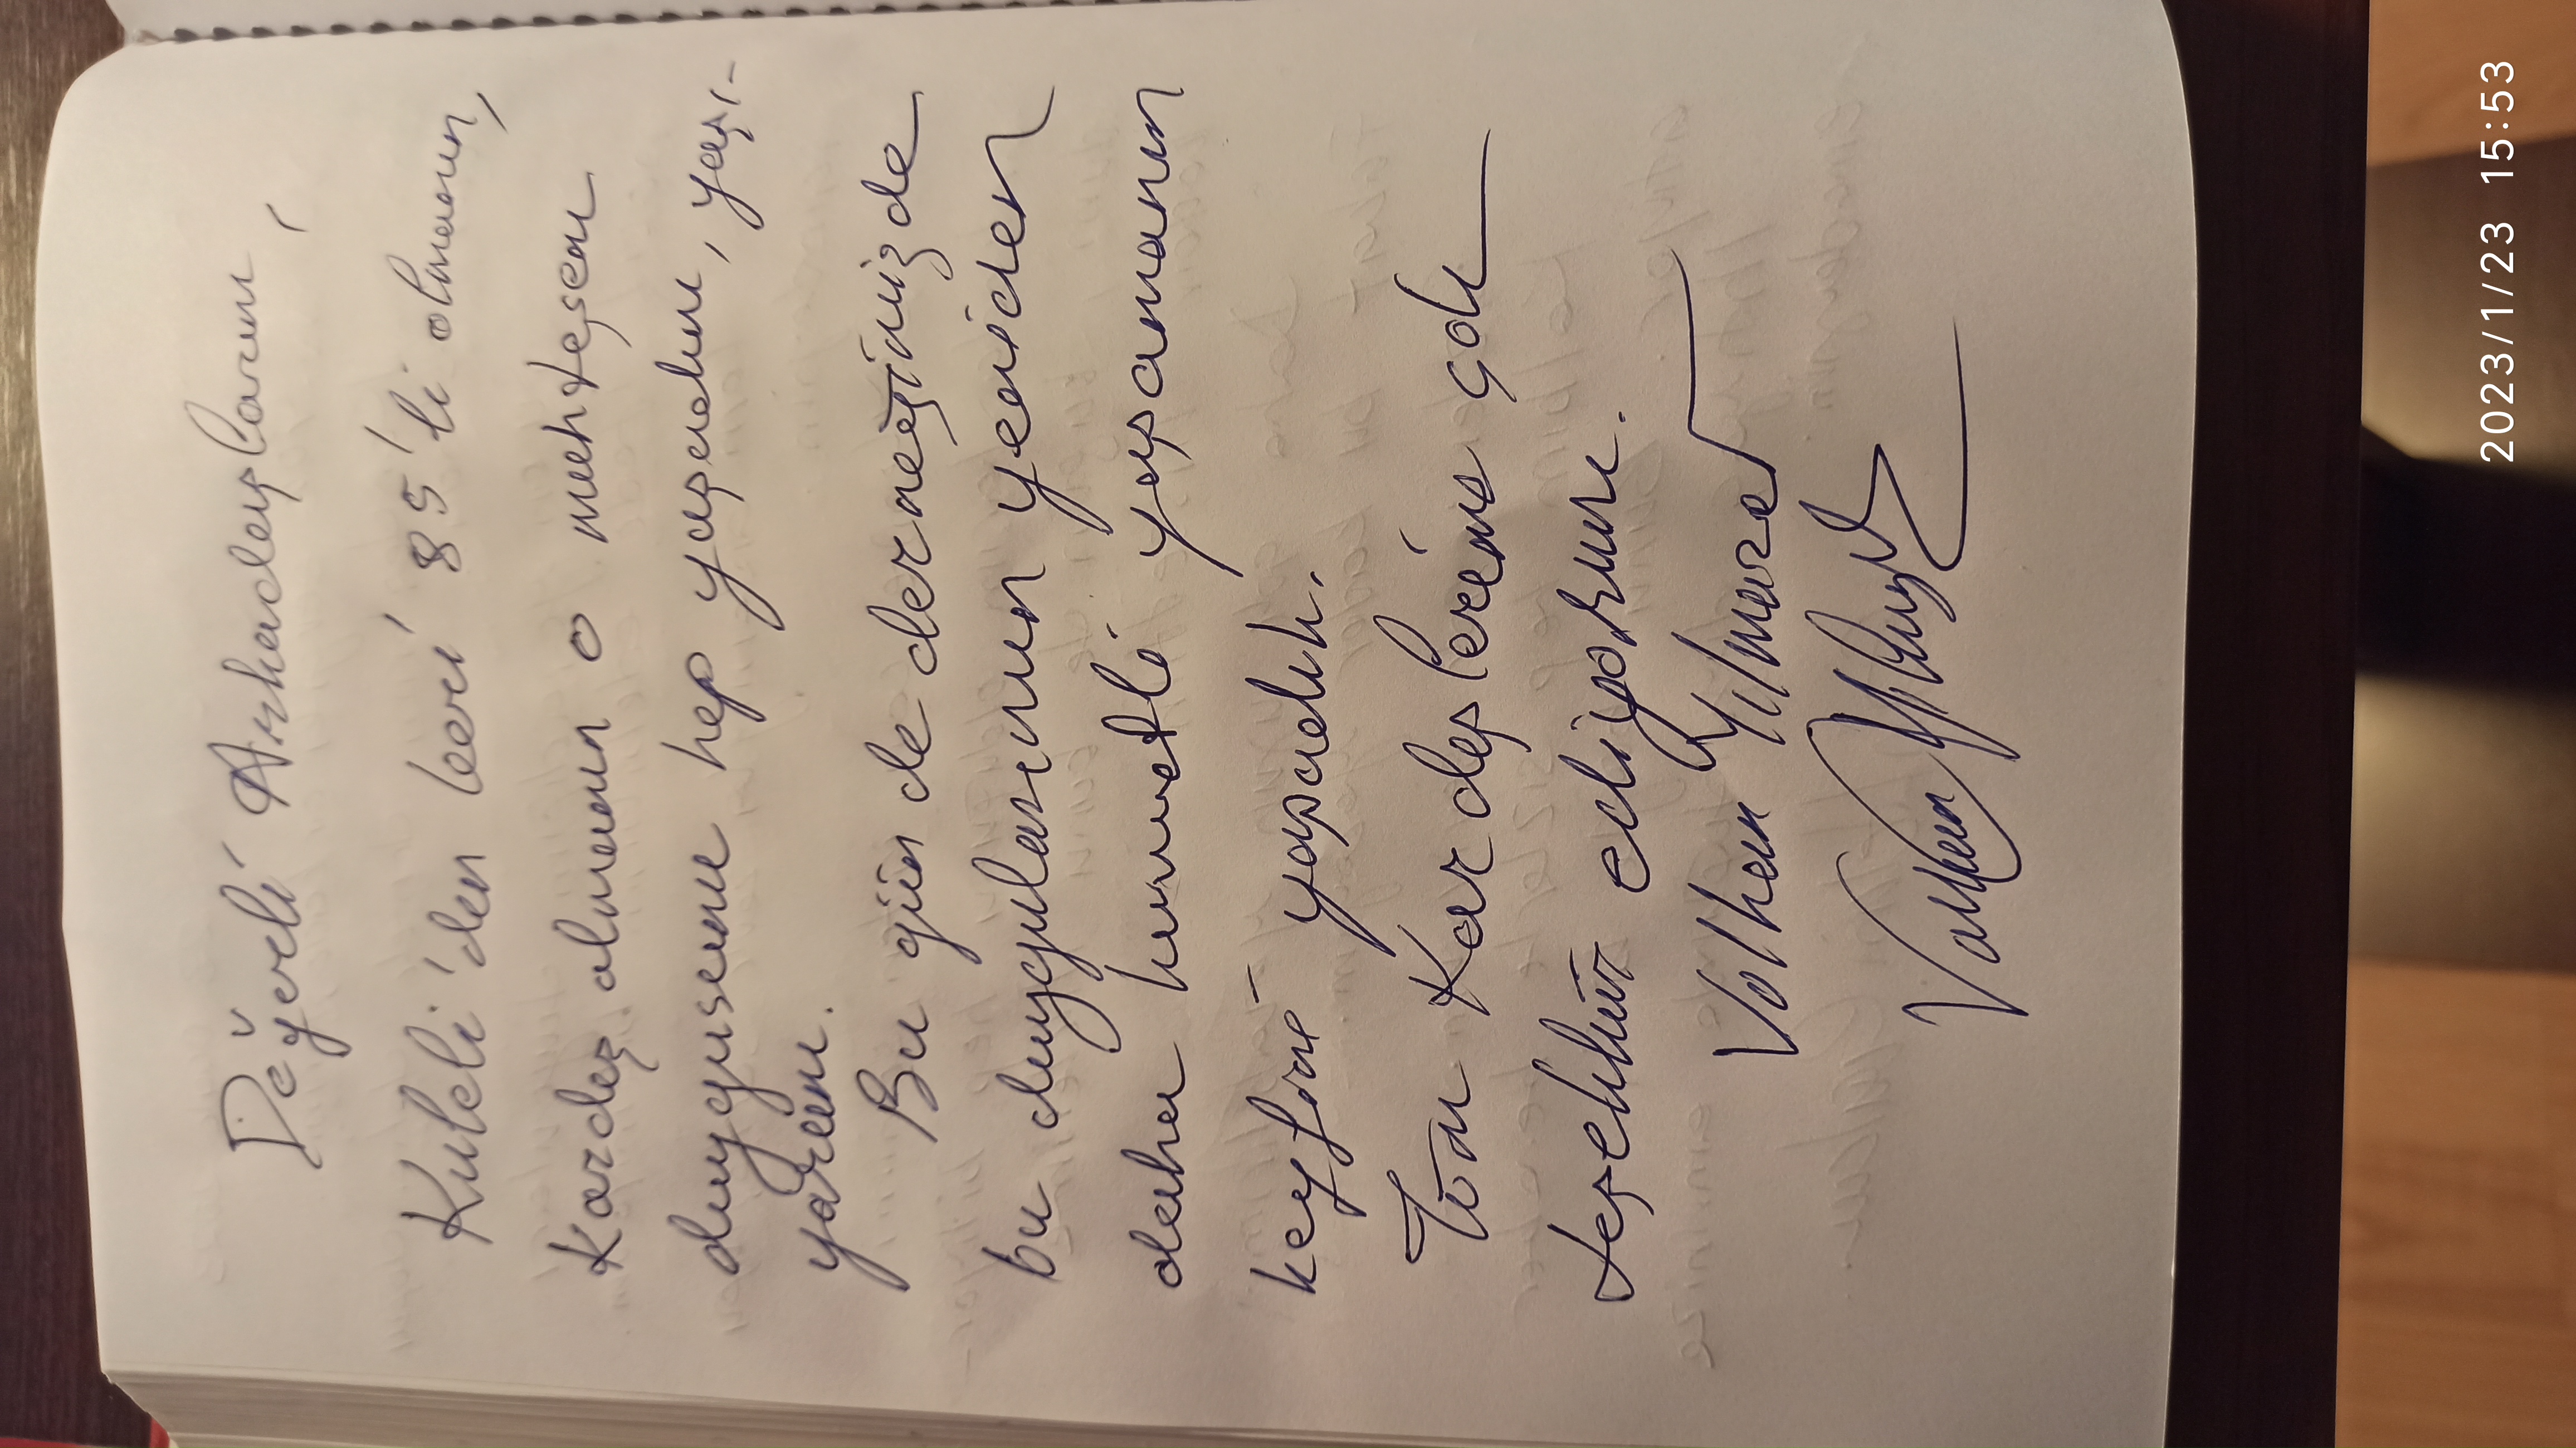 Değerli Arkadaşlarım,
Kuleli'den leri 85'li olmanın,
Kardeş olmanın o muhteşem
duygusunu hep yaşadım, yaşı-
yorum.
Bu gün de derneğinizde
bu duygularımın yeniden
daha kuvvetli yaşamanın
keyfini yaşadık.
Tüm Kardeşlerime çok
teşekkür ediyorum.
Volkan Yılmaz
2023/1/23 15:53